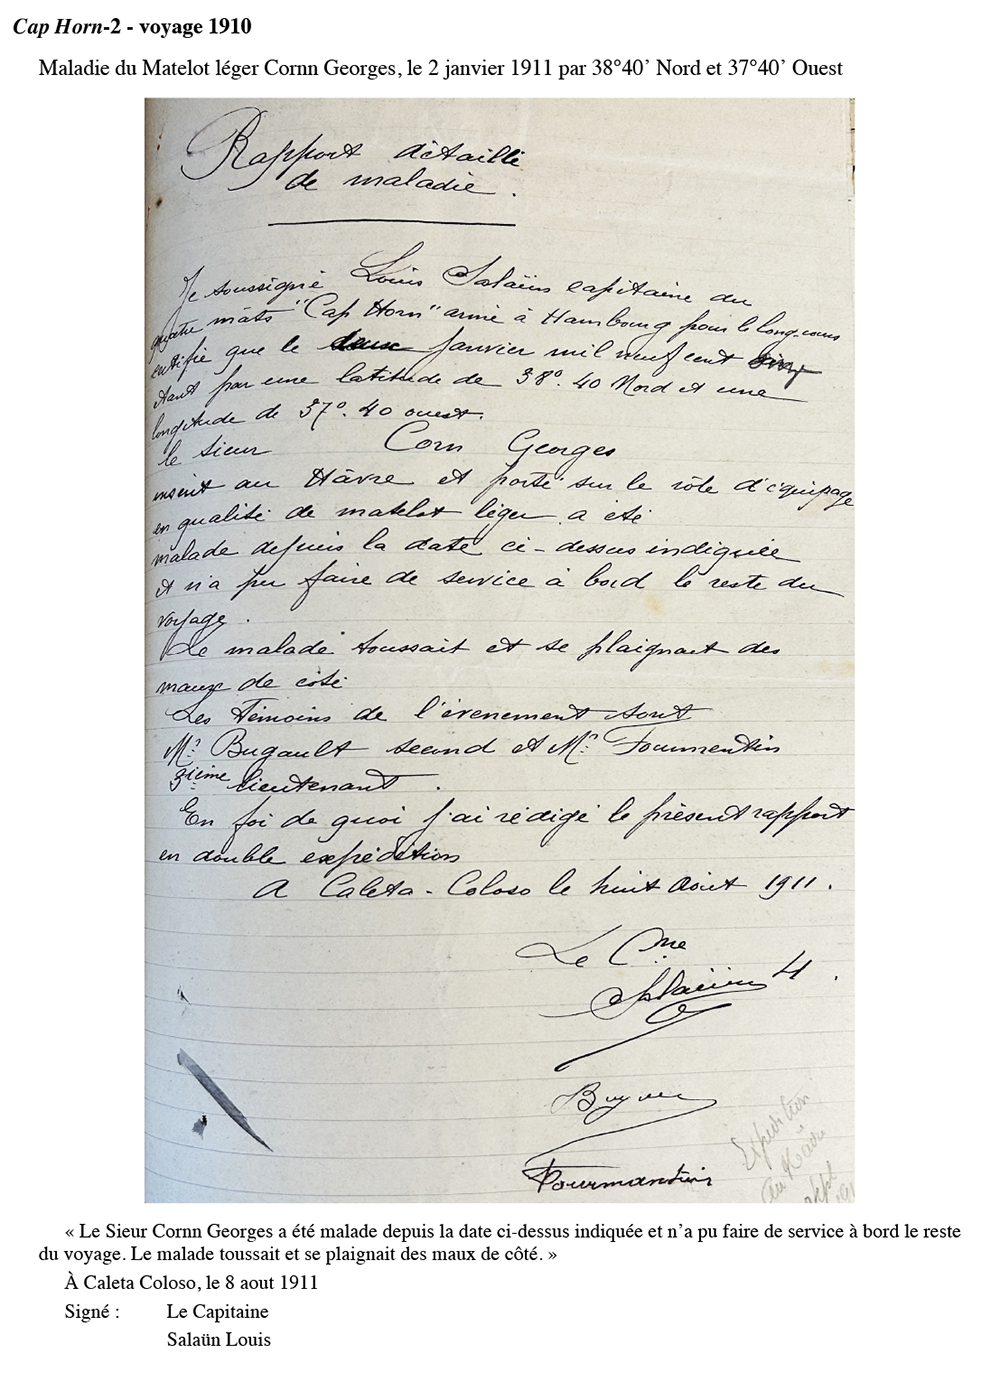 Cap Horn-2 - voyage 1910
Maladie du Matelot léger Cornn Georges, le 2 janvier 1911 par 38°40’ Nord et 37°40’ Ouest
Rapport détaillé
de maladie.
Je soussigné Louis Salaün capitaine du
quatre mâts "Cap Horn" armé à Hambourg pour le long-cours
certifie que le deux Janvier mil neuf cent
étant par une latitude de 38°. 40 Nord et une
longitude de 37°. 40 ouest.
le sieur Corn Georges
inscrit au Hâvre et porté sur le rôle d'équipage
en qualité de matelot léger a été
malade depuis la date ci-dessus indiquée
et n'a pu faire de service à bord le reste du
voyage.
Le malade toussait et se plaignait des
maux de côté
Les témoins de l'évenement sont
Mr. Bugault second et Mr. Fourmentin
3ième lieutenant.
En foi de quoi j'ai rédigé le présent rapport
en double expédition
A Caleta-Coloso le huit Août 1911.
Le Cne
Salaün
Fourmentin
Expédition
au Hâvre
« Le Sieur Cornn Georges a été malade depuis la date ci-dessus indiquée et n’a pu faire de service à bord le reste
du voyage. Le malade toussait et se plaignait des maux de côté. »
À Caleta Coloso, le 8 aout 1911
Signé : Le Capitaine
Salaün Louis